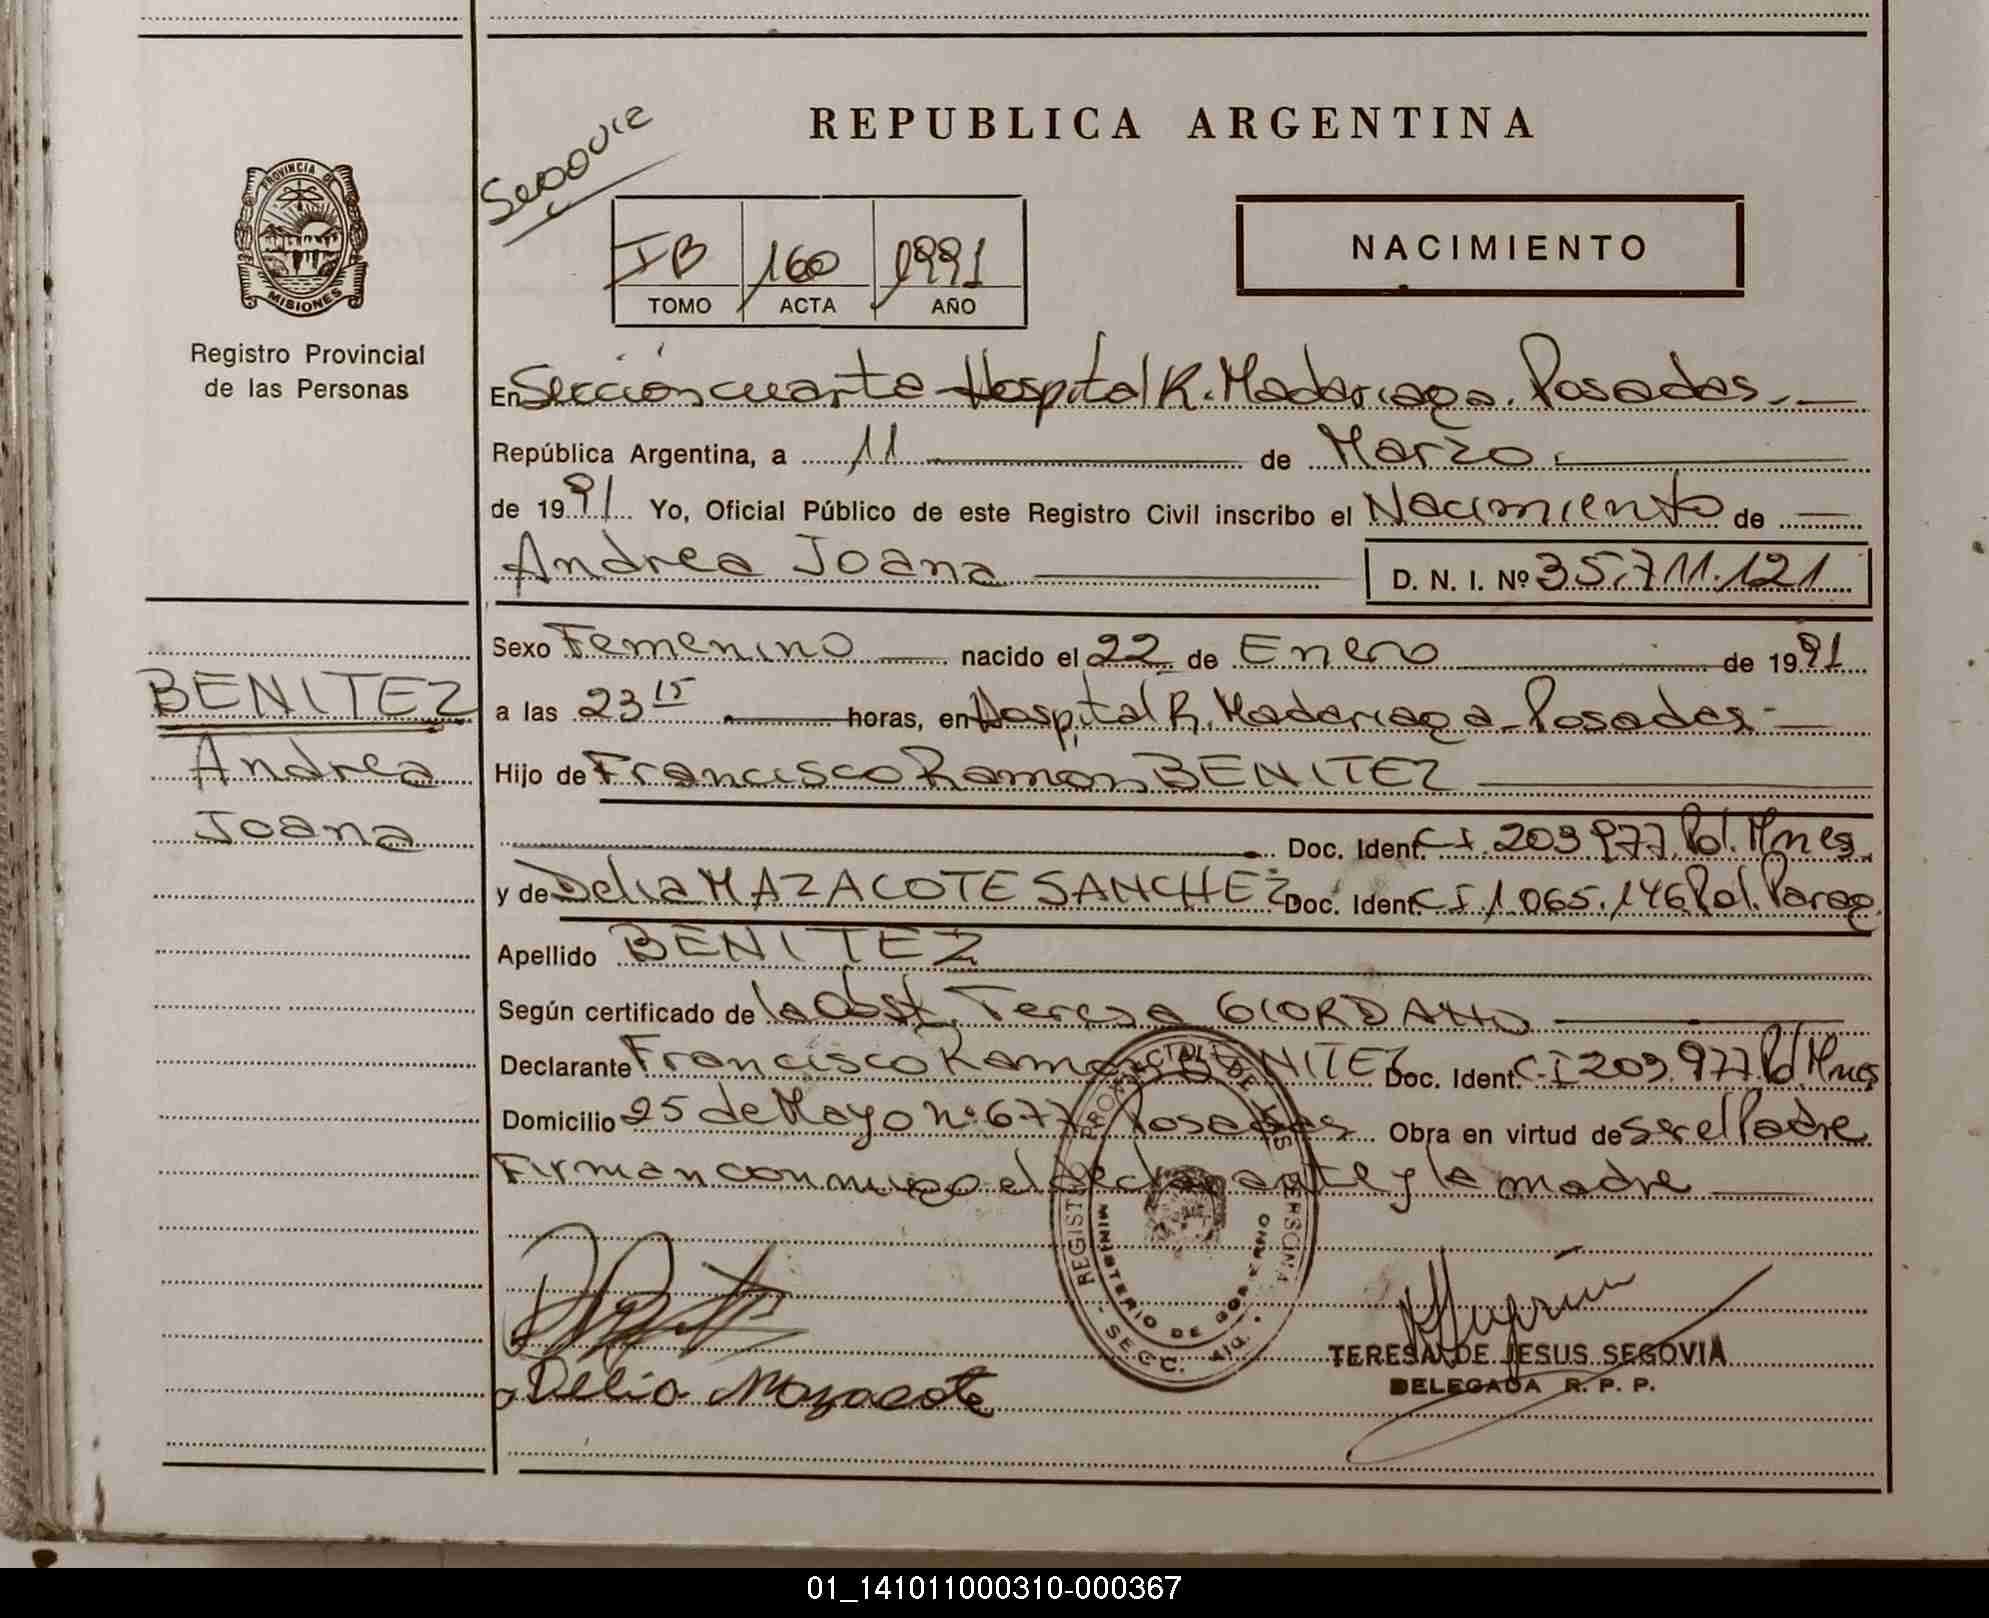 REPUBLICA ARGENTINA
Segovia
PROVINCIA DE
MISIONES
Registro Provincial
de las Personas
IB 160 1991
TOMO ACTA AÑO
NACIMIENTO
En Sección cuarta Hospital R. Madariaga. Posadas.
República Argentina, a 11 de Marzo
de 1991 Yo, Oficial Público de este Registro Civil inscribo el Nacimiento de
Andrea Joana D. N. I. Nº 35.711.121
Sexo Femenino nacido el 22 de Enero de 1991
a las 23 15 horas, en Hospital R. Madariaga - Posadas
Hijo de Francisco Ramon BENITEZ
Doc. Ident. C I. 203 977 Pol. Mnes.
y de Delia MAZACOTE SANCHEZ Doc. Ident. C I 1.065.146 Pol. Parag.
Apellido BENITEZ
Según certificado de la Obst. Teresa GIORDANO
Declarante Francisco Ramon BENITEZ Doc. Ident. C-I 203.977 Pol. Mnes
Domicilio 25 de Mayo nº 677 Posadas Obra en virtud de ser el Padre
Firman conmigo el declarante y la madre
BENITEZ
Andrea
Joana
REGISTRO PROVINCIAL DE LAS PERSONAS
MINISTERIO DE GOBIERNO
SECC. 4ta.
Delia Mazacote
TERESA DE JESUS SEGOVIA
DELEGADA R. P. P.
01_141011000310-000367